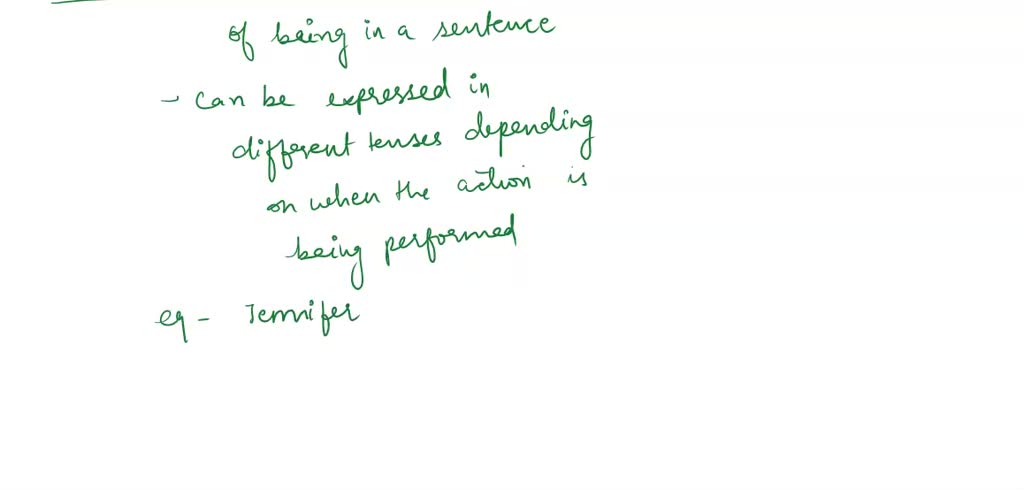 of being in a sentence
- can be expressed in
different tenses depending
on when the action is
being performed
eg - Jennifer